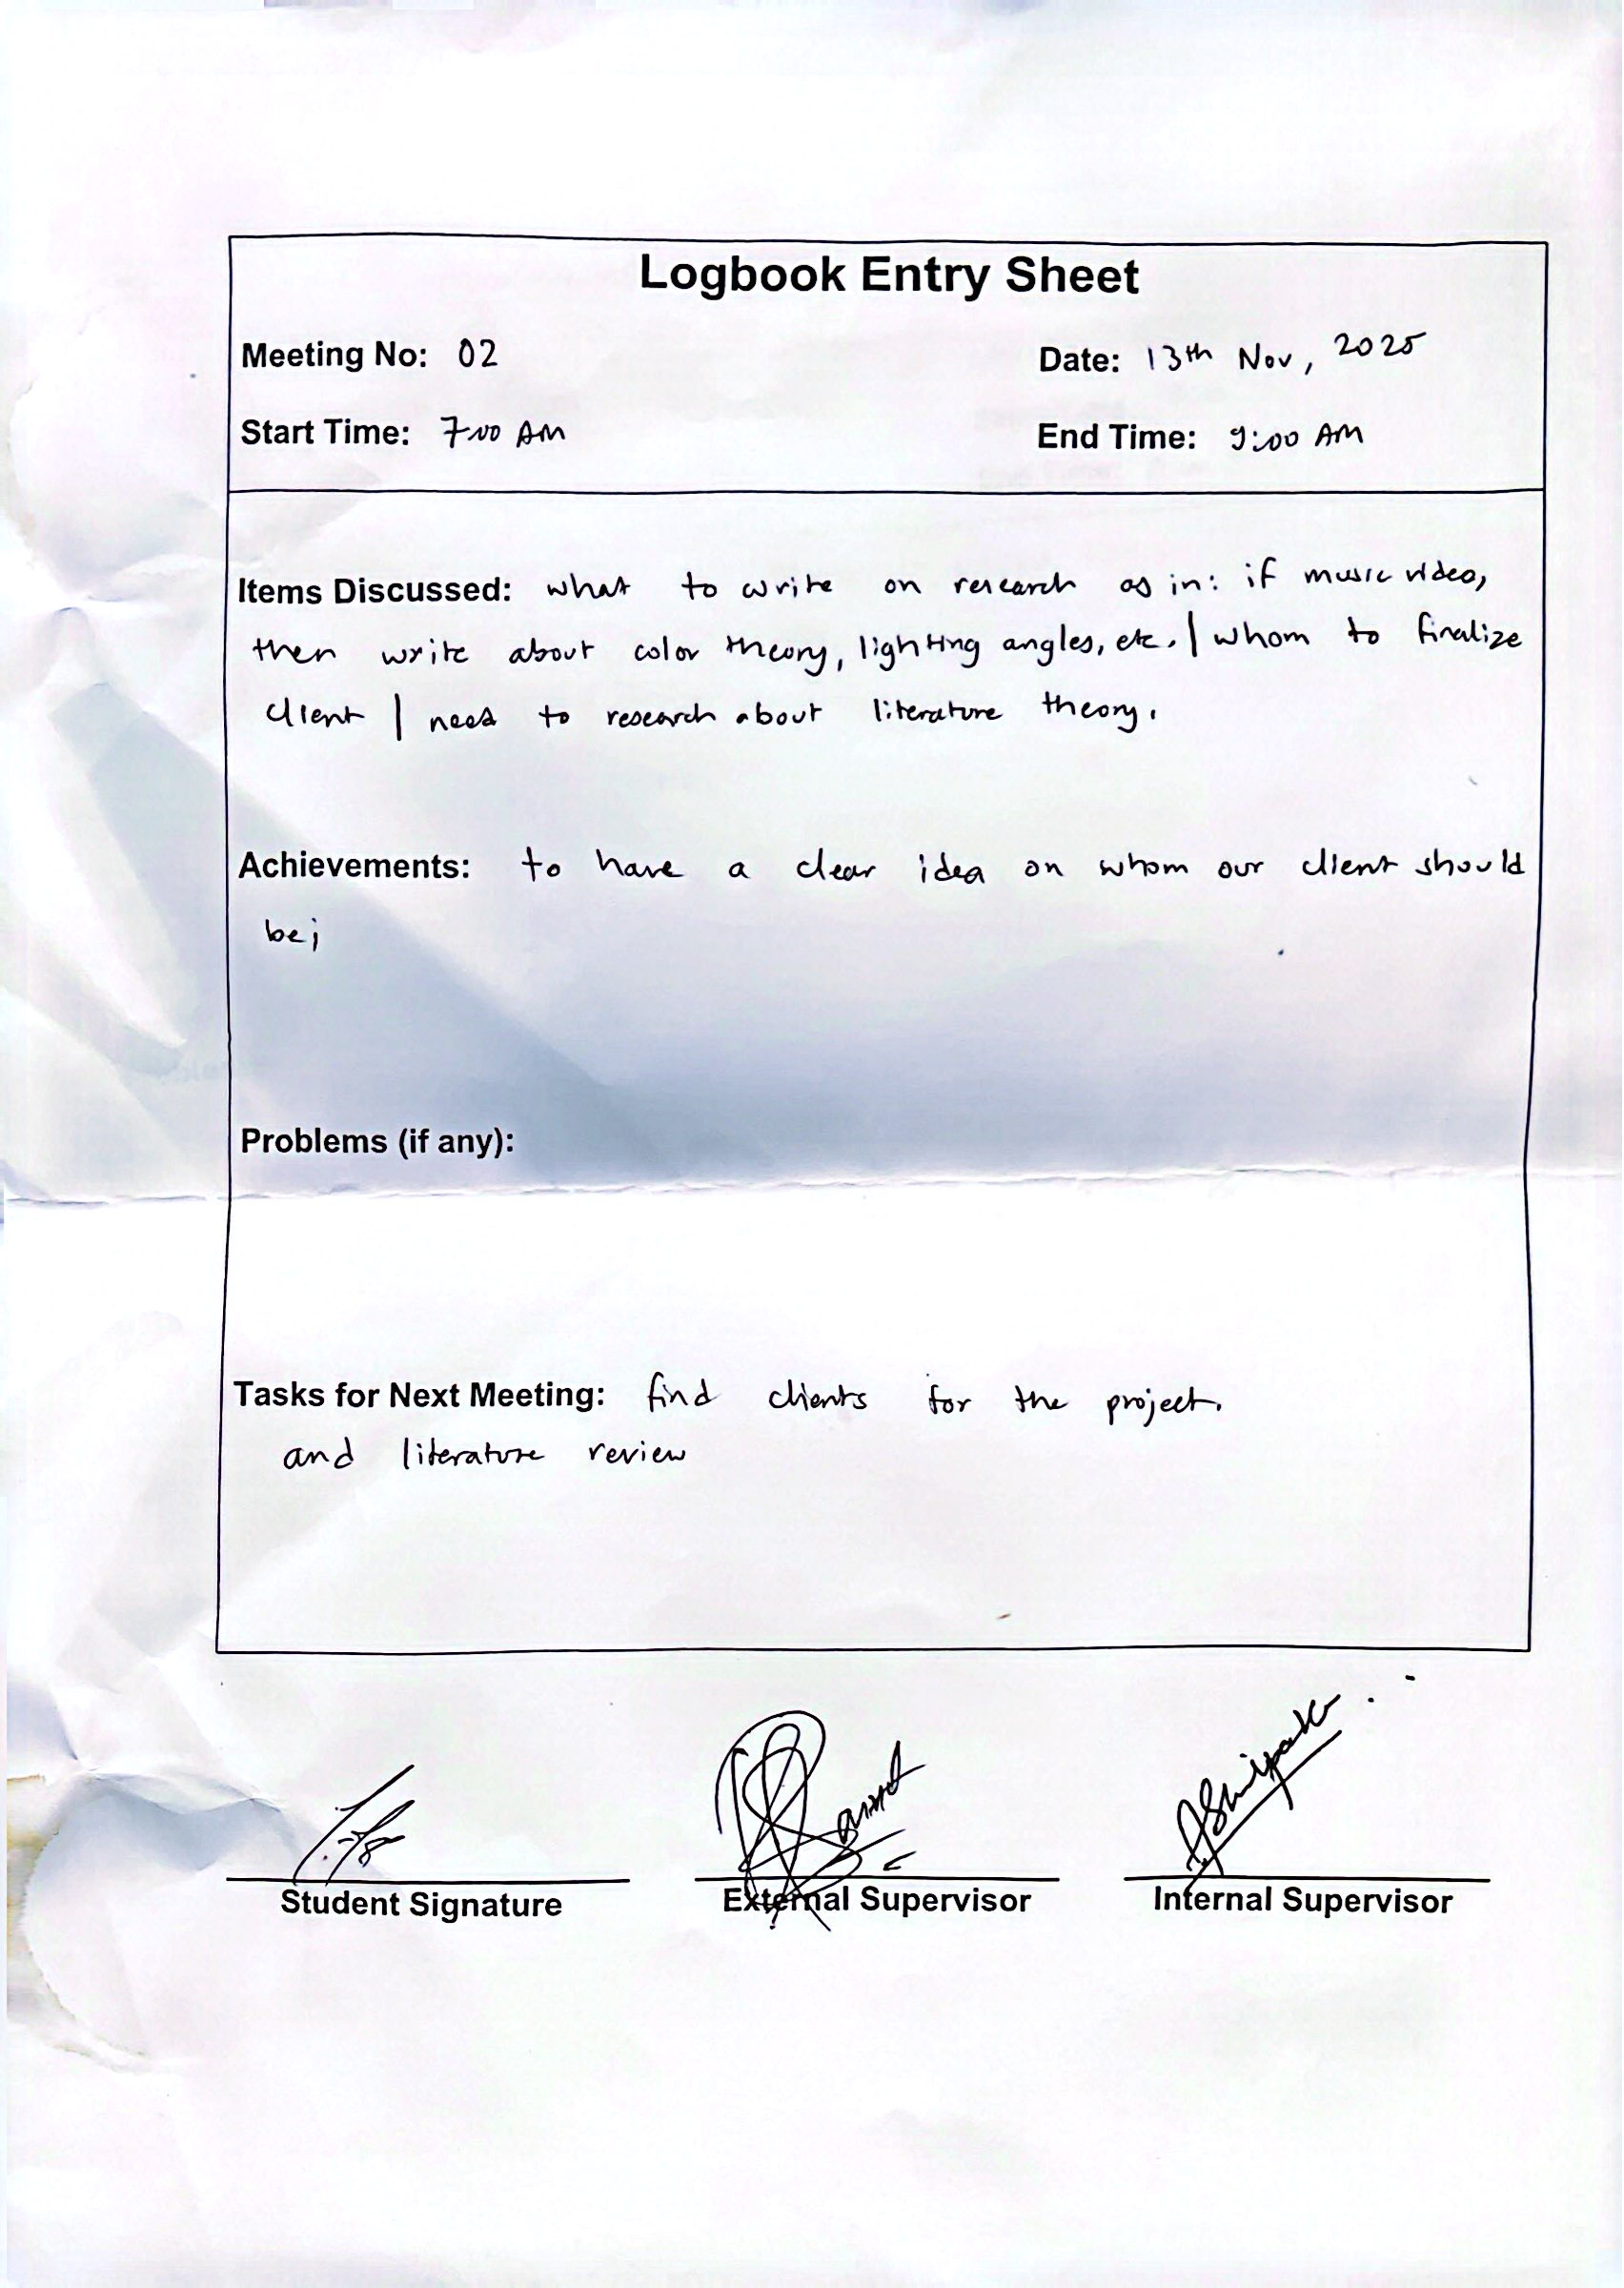 Logbook Entry Sheet
Meeting No: 02 Date: 13th Nov, 2025
Start Time: 7:00 AM End Time: 9:00 AM
Items Discussed: what to write on research as in: if music video,
then write about color theory, lighting angles, etc. | whom to finalize
client | need to research about literature theory.
Achievements: to have a clear idea on whom our client should
be;
Problems (if any):
Tasks for Next Meeting: find clients for the project.
and literature review
Student Signature External Supervisor Internal Supervisor